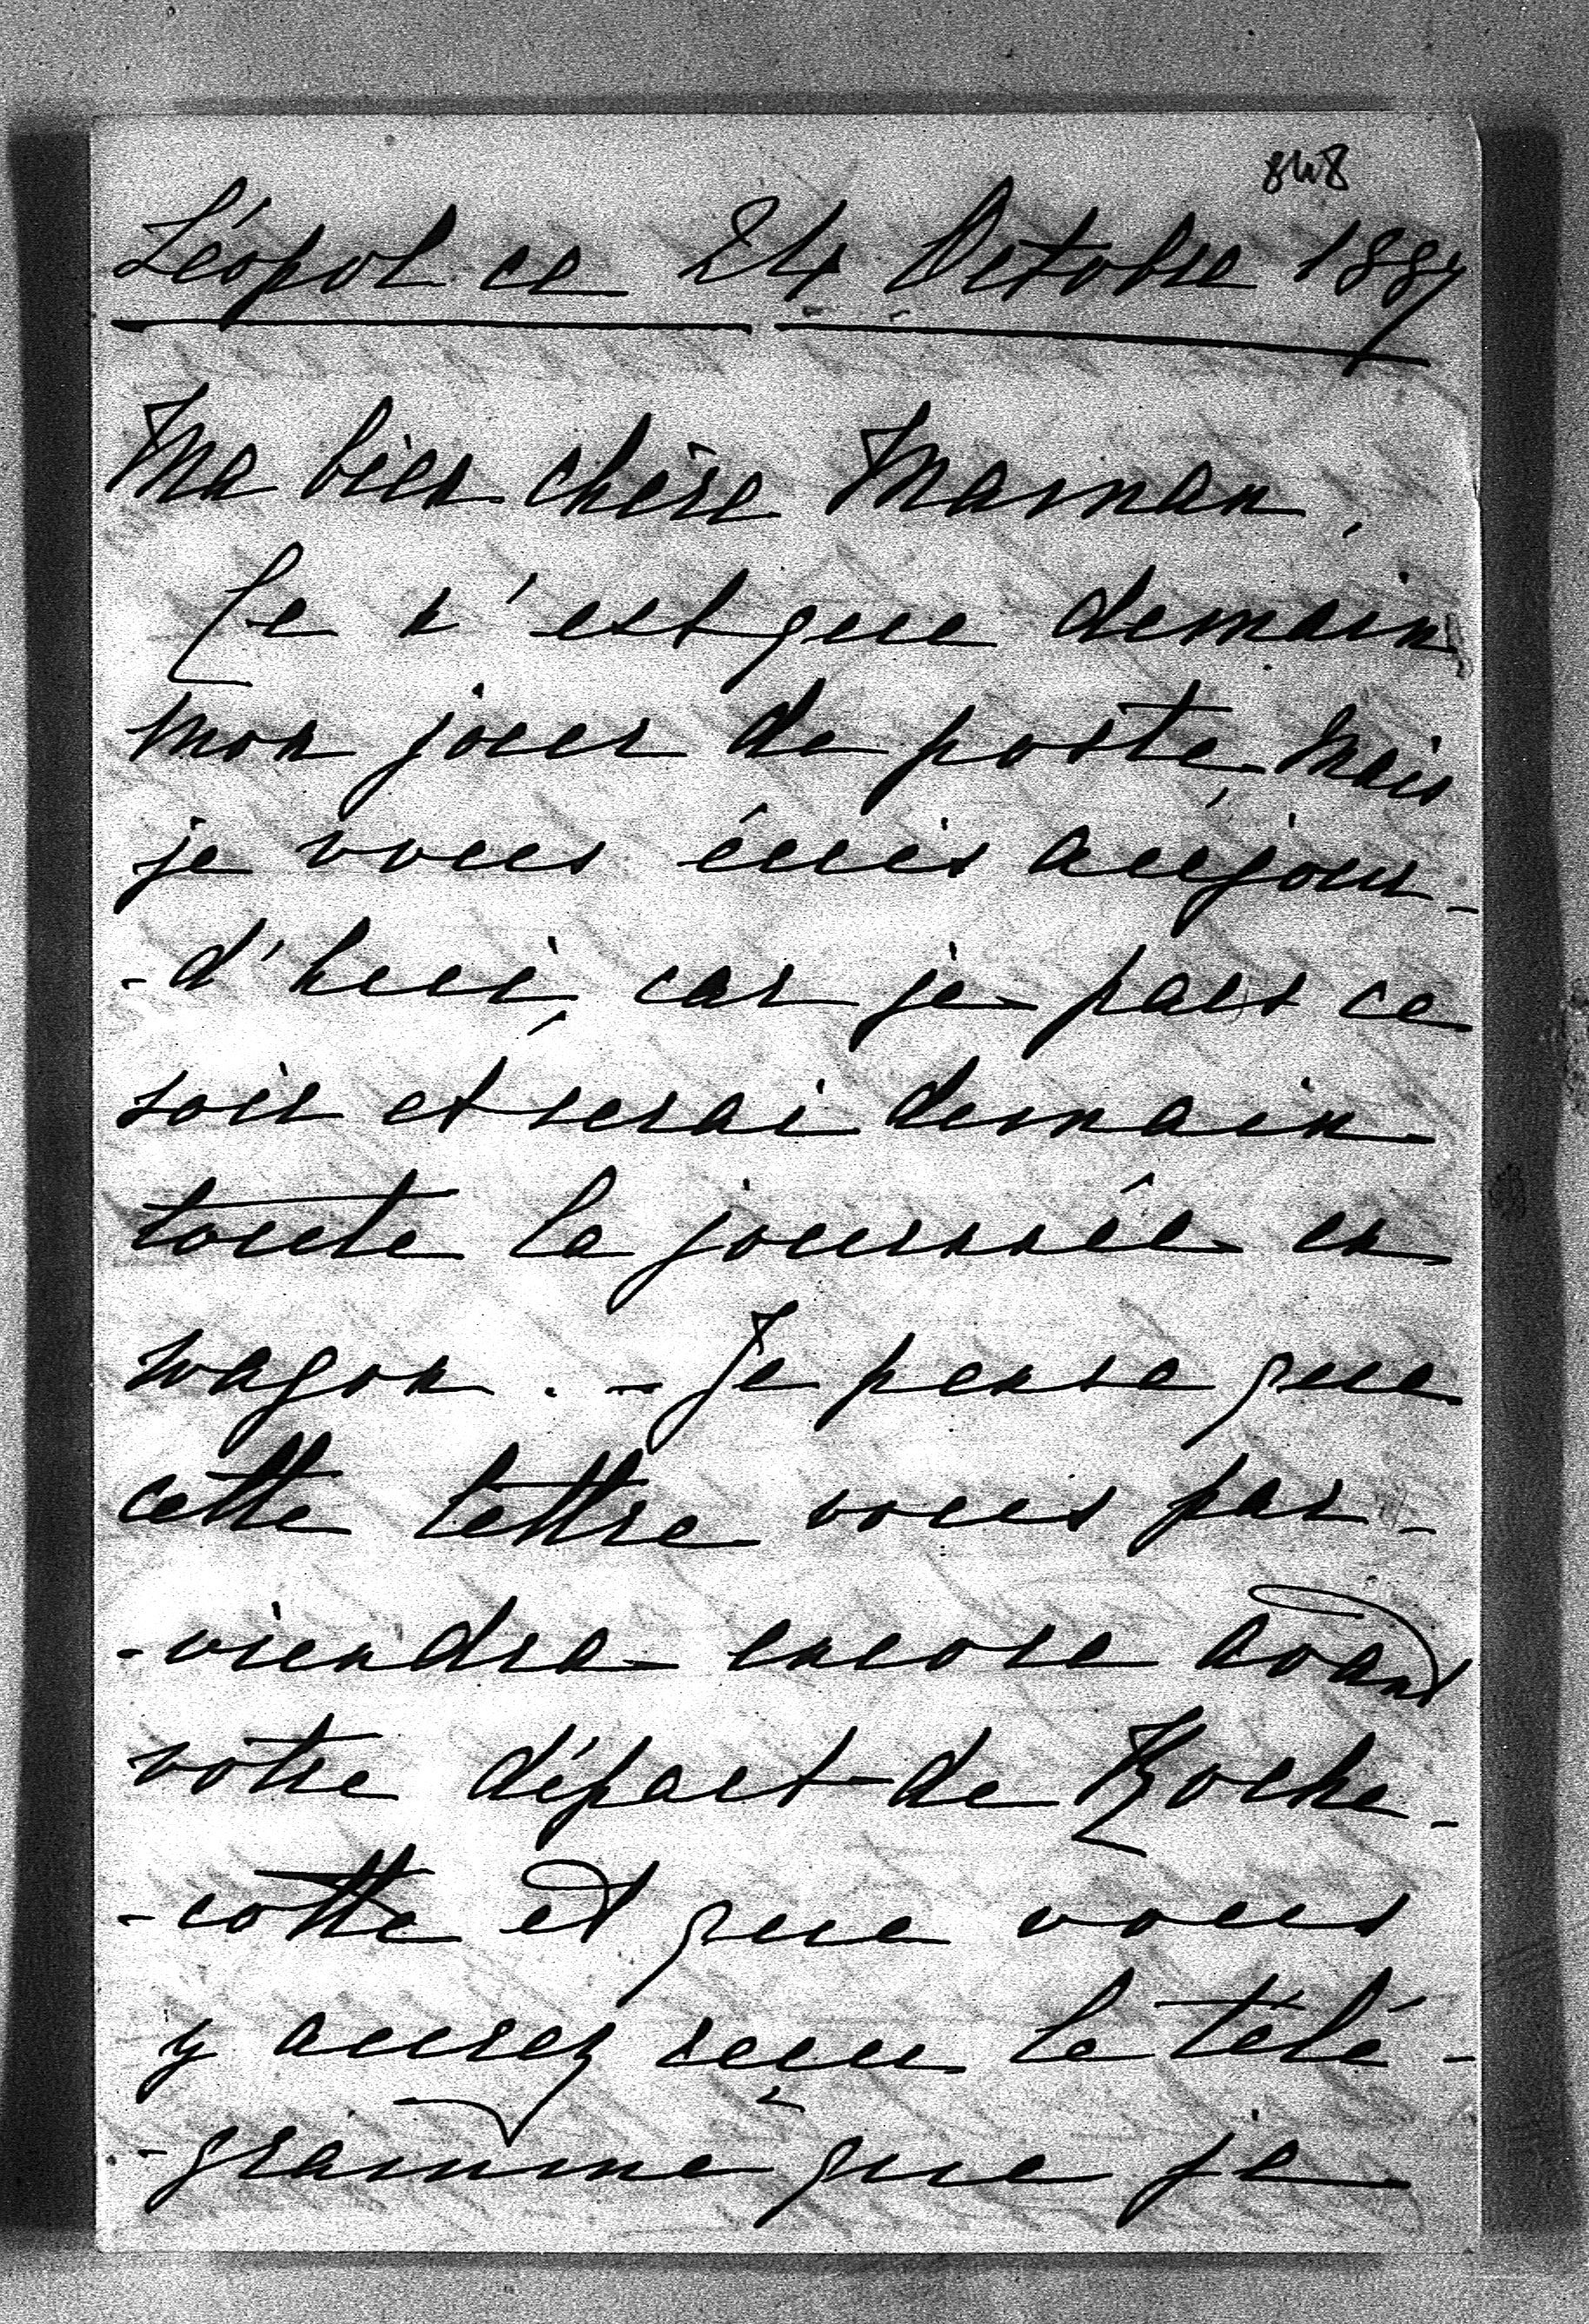 848
Léopol ce 24 Octobre 1887
Ma bien chère Maman,
Ce n'est que demain
mon jour de poste, mais
je vous écris aujour-
-d'hui, car je pars ce
soir et serai demain
toute la journée en
wagon. - Je pense que
cette lettre vous par-
-viendra encore avant
votre départ de Roche-
-cotte et que vous
y aurez reçu le télé-
-gramme que je